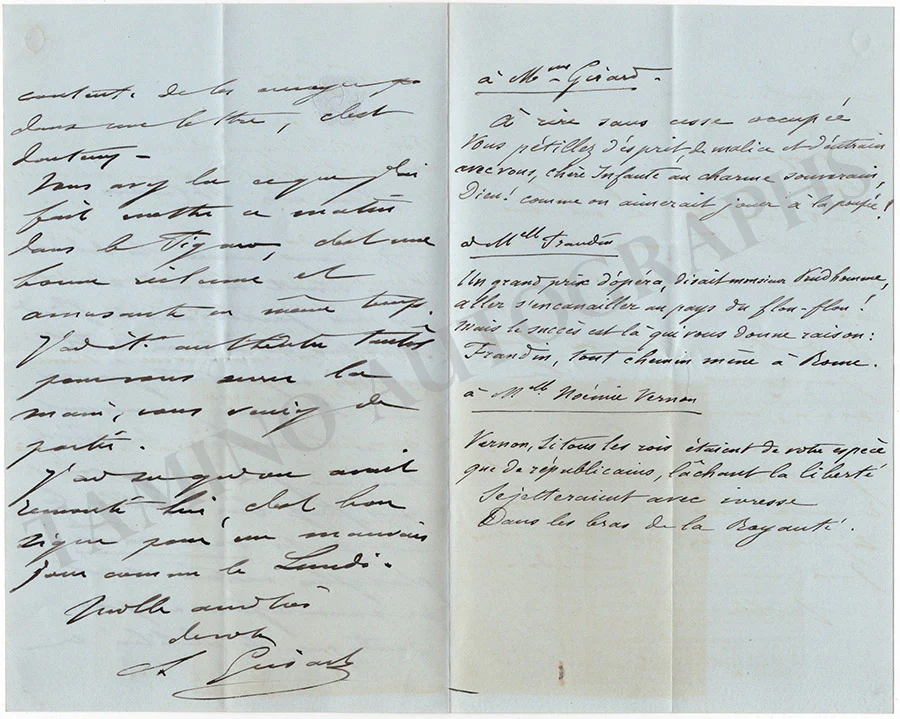 dans une lettre, c'est
Vous avez lu ce que j'ai
fait mettre ce matin
dans le Figaro, c'est une
bonne réclame et
amusante en même temps.
J'ai été au théâtre tantôt
pour vous serrer la
main, vous veniez de
partir.
J'ai su qu'on avait
remonté hier, c'est bon
signe pour un mauvais
jour comme le Lundi.
Mille amitiés
A Girard
à M^me Girard.
À rire sans cesse occupée
Vous pétillez d'esprit, de malice et d'entrain
avec vous, chère Infante au charme souverain,
Dieu! comme on aimerait jouer à la poupée!
à M^elle Frandin
Un grand prix d'opéra, disait monsieur Prudhomme,
aller s'encanailler au pays du flon-flon!
mais le succès est là qui vous donne raison:
Frandin, tout chemin mène à Rome.
à M^elle Noémie Vernon
Vernon, si tous les rois étaient de votre espèce
que de républicains, lâchant la liberté
Se jetteraient avec ivresse
Dans les bras de la Royauté.
TAMINO AUTOGRAPHS